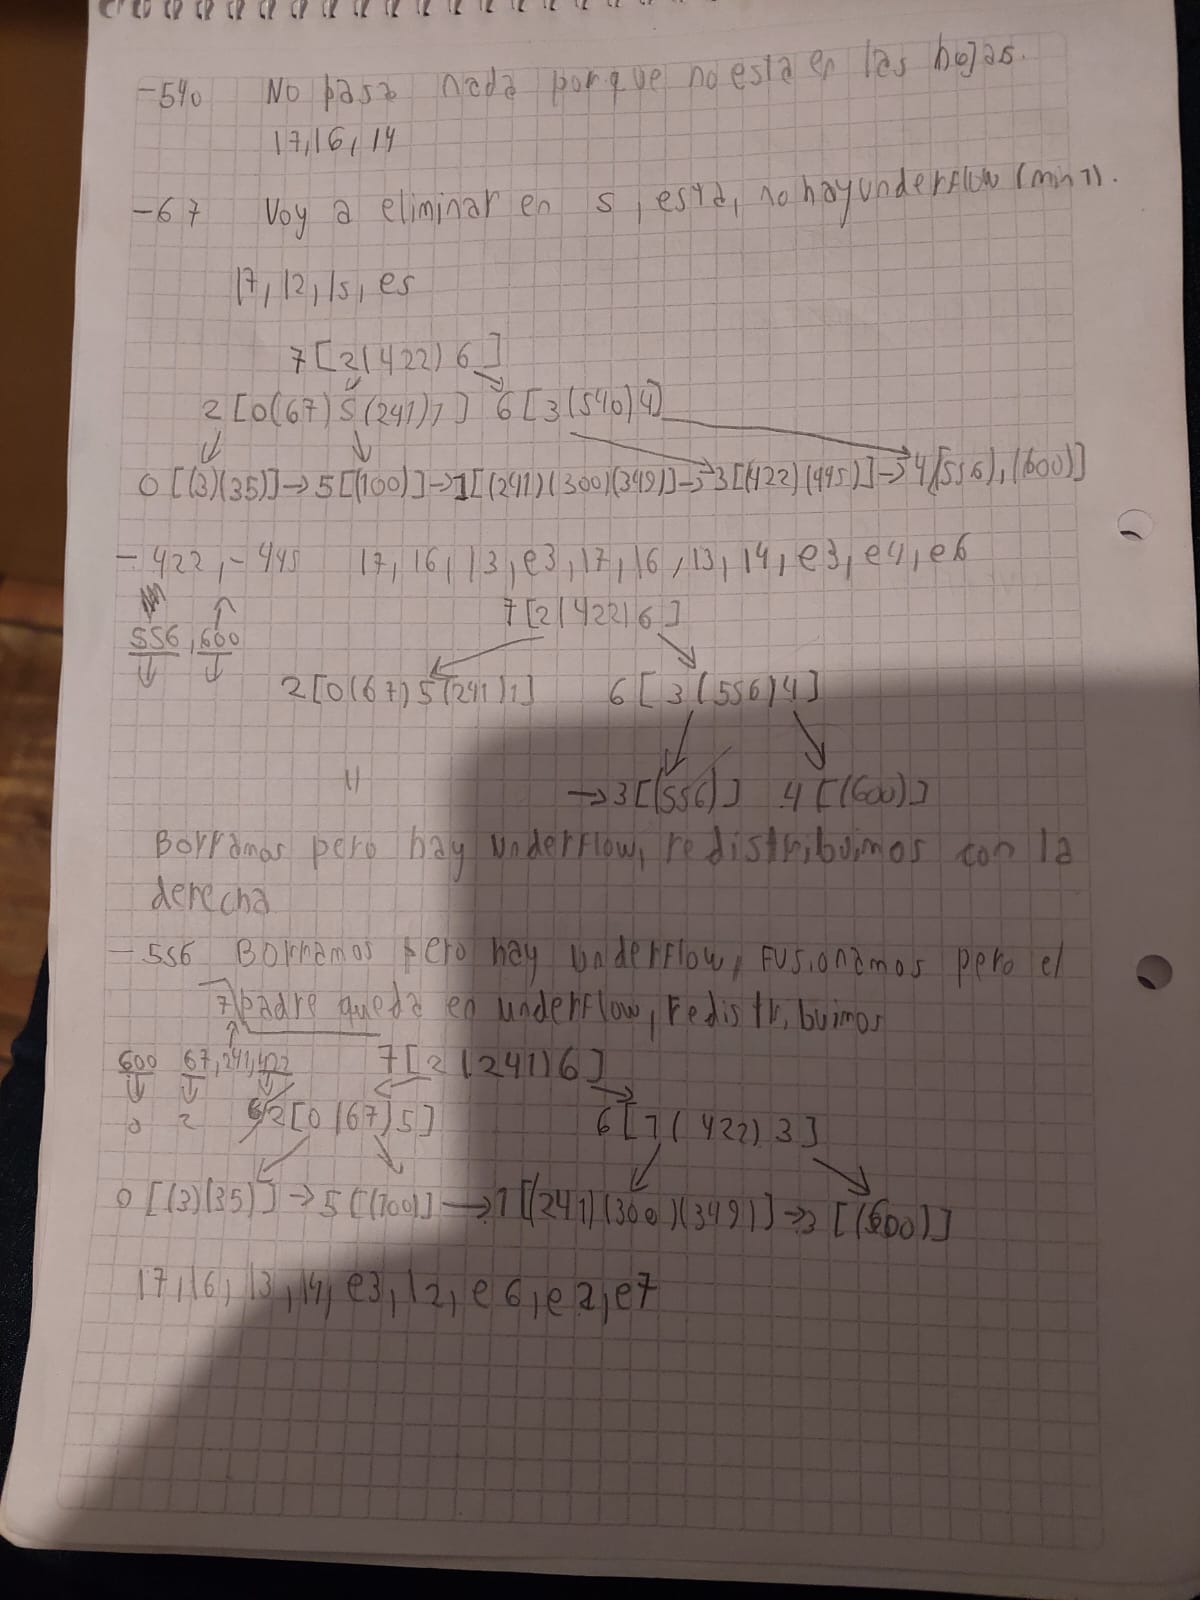 -540 No pasa nada porque no esta en las hojas.
17, 16, 14
-67 Voy a eliminar en 5, esta, no hay underflow (min 1).
17, 12, 15, e5
7 [2(422) 6]
2 [0(67) 5 (241) 1] 6 [3(540)4]
0 [(3)(35)] → 5 [(100)] → 1 [(241)(300)(349)] → 3 [(422)(445)] → 4 [(556), (600)]
- 422, - 445 17, 16, 13, e3, 17, 16, 13, 14, e3, e4, e6
7 [2(422)6]
556, 600
2 [0(67) 5 (241) 1] 6 [3 (556) 4]
11
→ 3 [(556)] 4 [(600)]
Borramos pero hay underflow, redistribuimos con la
derecha
- 556 Borramos pero hay underflow, fusionamos pero el
7 padre queda en underflow, redistribuimos
600 67, 241, 422 7 [2 (241) 6]
0 2 2 [0 (67) 5] 6 [1 (422) 3]
0 [(3)(35)] → 5 [(100)] → 1 [(241)(300)(349)] → 3 [(600)]
17, 16, 13, 14, e3, 12, e6, e2, e7